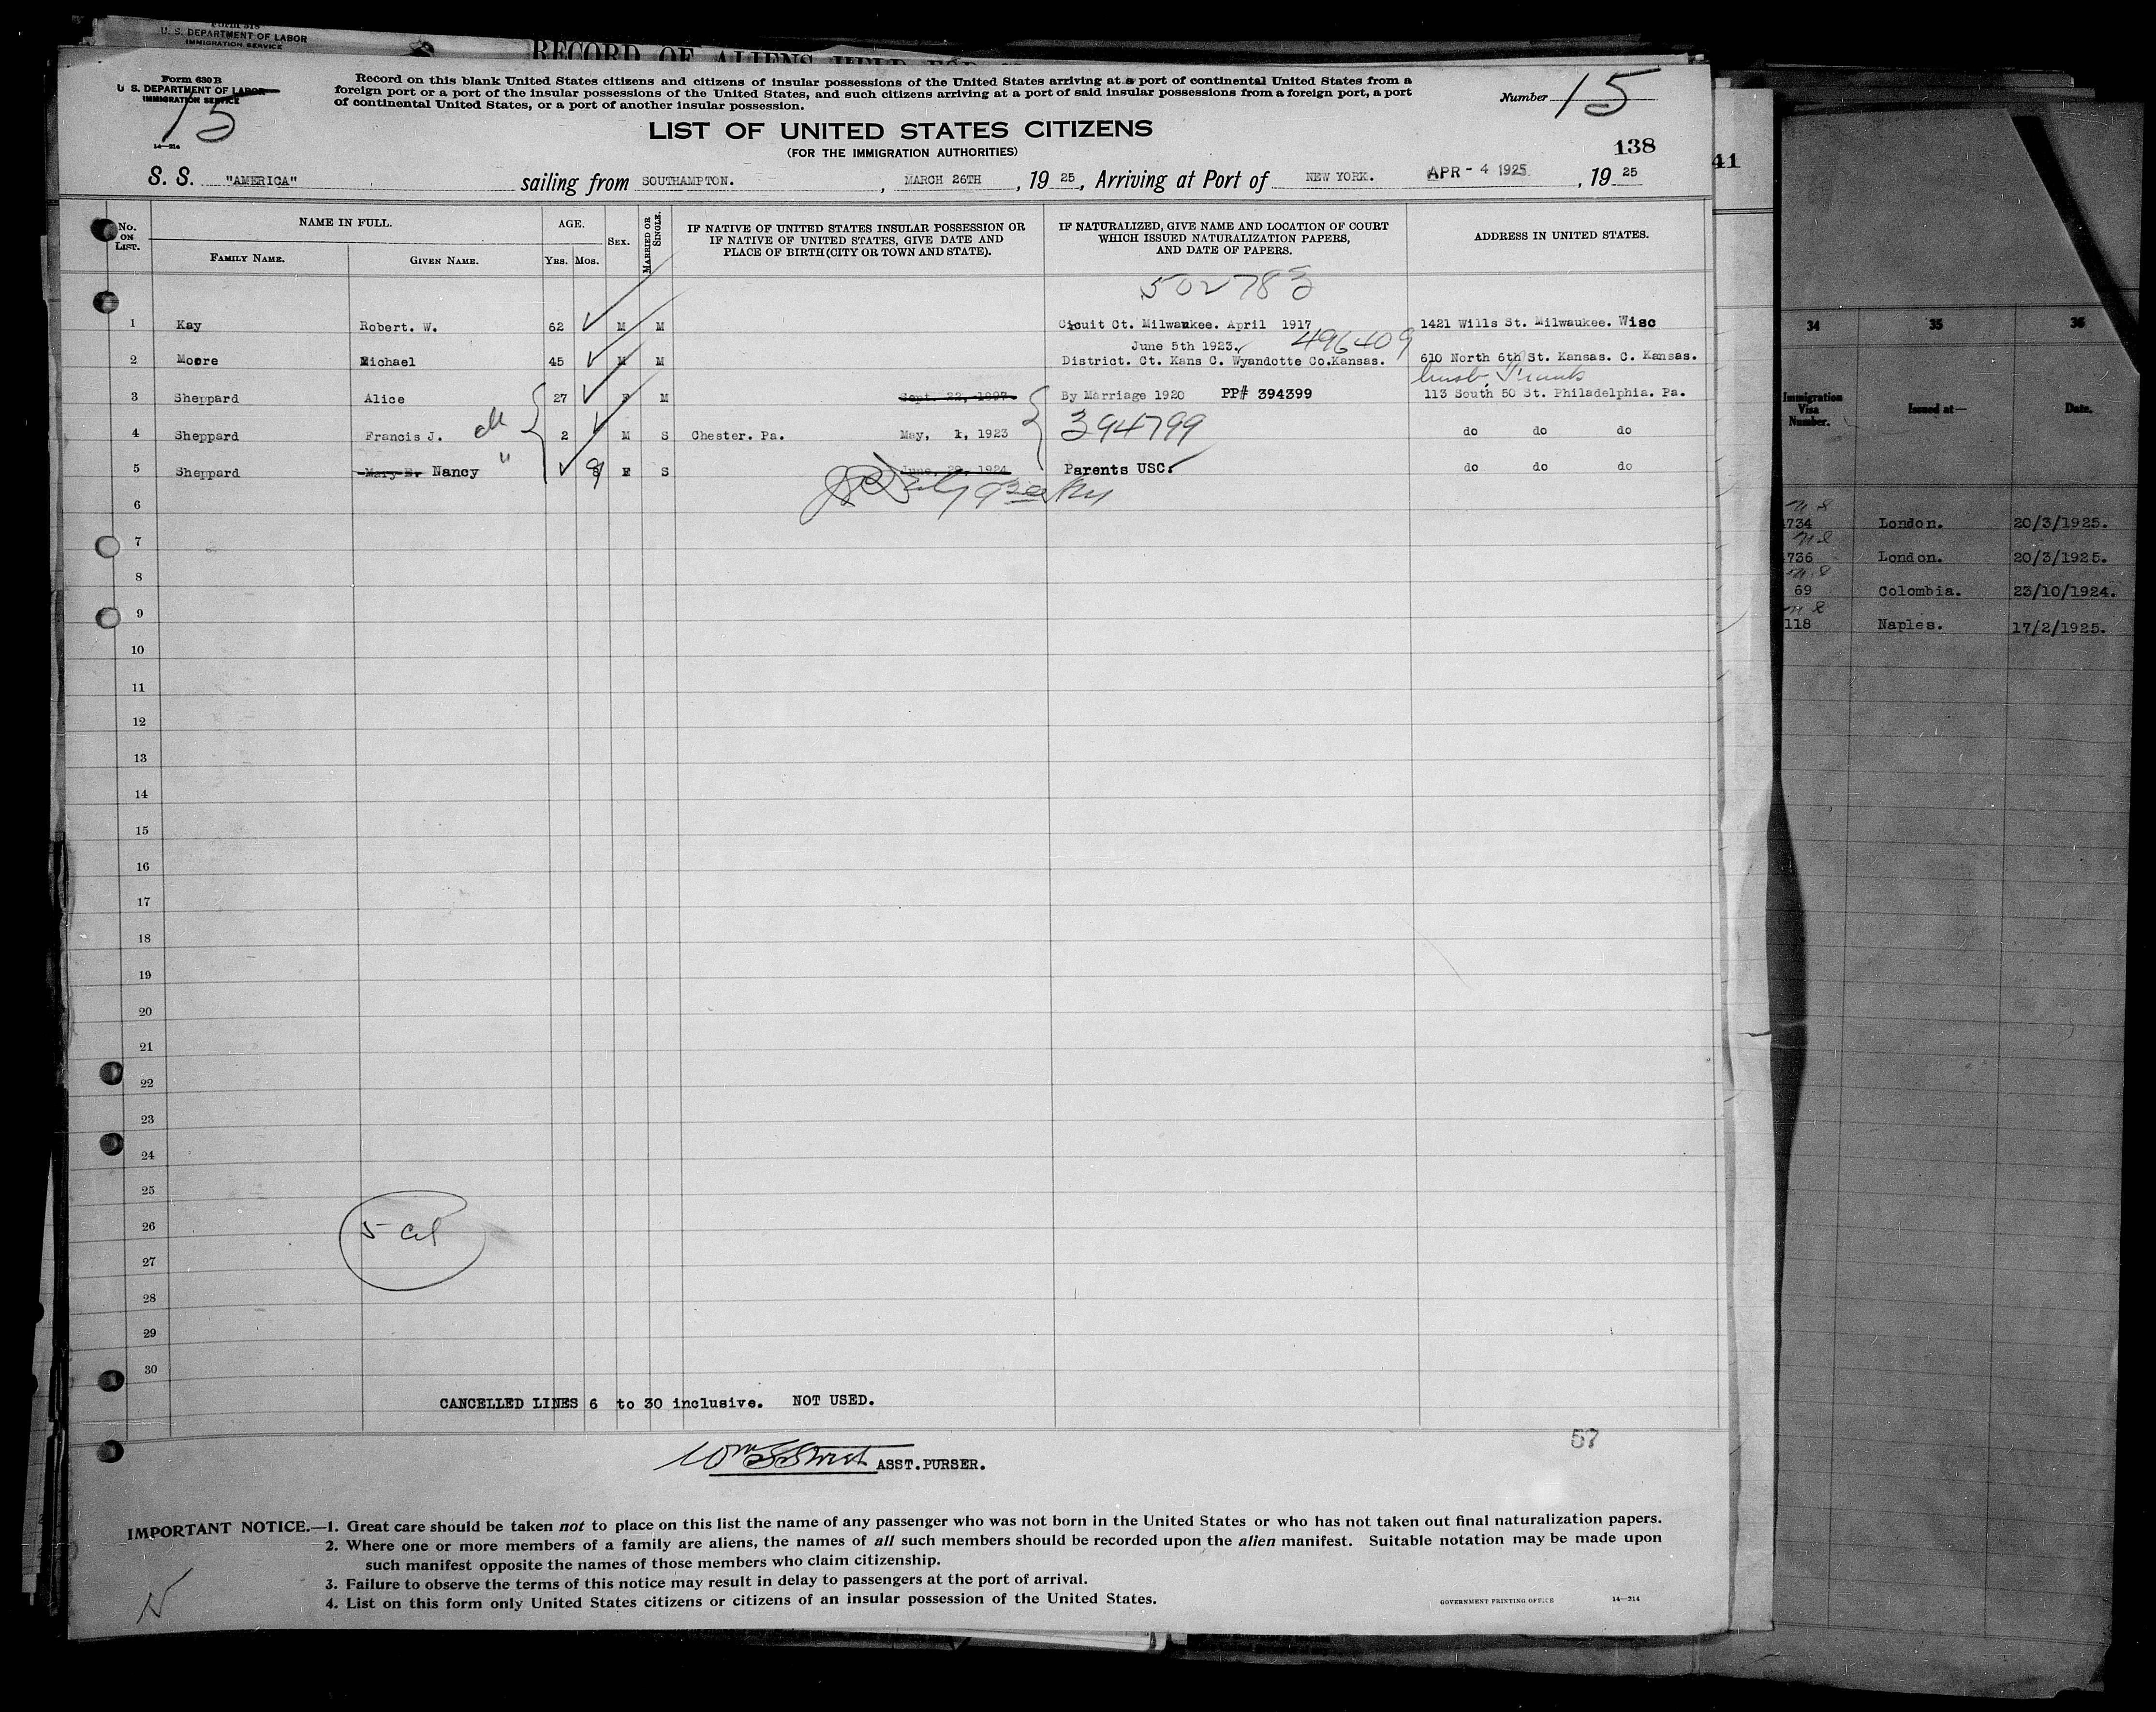 U. S. DEPARTMENT OF LABOR
IMMIGRATION SERVICE
Form 630 B
U. S. DEPARTMENT OF LABOR
IMMIGRATION SERVICE
15
14—214
Record on this blank United States citizens and citizens of insular possessions of the United States arriving at a port of continental United States from a
foreign port or a port of the insular possessions of the United States, and such citizens arriving at a port of said insular possessions from a foreign port, a port
of continental United States, or a port of another insular possession.
Number 15
LIST OF UNITED STATES CITIZENS
(FOR THE IMMIGRATION AUTHORITIES)
138
41
S. S. "AMERICA" sailing from SOUTHAMPTON. , MARCH 26TH , 19 25, Arriving at Port of NEW YORK. APR - 4 1925 , 19 25
No. ON LIST. NAME IN FULL. AGE. SEX. MARRIED OR SINGLE. IF NATIVE OF UNITED STATES INSULAR POSSESSION OR IF NATIVE OF UNITED STATES, GIVE DATE AND PLACE OF BIRTH (CITY OR TOWN AND STATE). IF NATURALIZED, GIVE NAME AND LOCATION OF COURT WHICH ISSUED NATURALIZATION PAPERS, AND DATE OF PAPERS. ADDRESS IN UNITED STATES.
FAMILY NAME. GIVEN NAME. YRS. MOS.
502783
1 Kay Robert. W. 62 M M Cicuit Ct. Milwaukee. April 1917 1421 Wills St. Milwaukee. Wisc
June 5th 1923. 496409
2 Moore Michael 45 M M District. Ct. Kans C. Wyandotte Co.Kansas. 610 North 6th St. Kansas. C. Kansas.
3 Sheppard Alice 27 F M Sept. 22, 1897 By Marriage 1920 PP# 394399 113 South 50 St. Philadelphia. Pa.
4 Sheppard Francis J. 2 M S Chester. Pa. May, 1, 1923 394799 do do do
5 Sheppard Mary E. Nancy " 9 F S June, 29, 1924 Parents USC. do do do
6
7
8
9
10
11
12
13
14
15
16
17
18
19
20
21
22
23
24
25
26
27
28
29
30
CANCELLED LINES 6 to 30 inclusive. NOT USED.
57
ASST.PURSER.
IMPORTANT NOTICE.—1. Great care should be taken not to place on this list the name of any passenger who was not born in the United States or who has not taken out final naturalization papers.
2. Where one or more members of a family are aliens, the names of all such members should be recorded upon the alien manifest. Suitable notation may be made upon
such manifest opposite the names of those members who claim citizenship.
3. Failure to observe the terms of this notice may result in delay to passengers at the port of arrival.
4. List on this form only United States citizens or citizens of an insular possession of the United States.
GOVERNMENT PRINTING OFFICE 14—214
34 35 36
Immigration Visa Number. Issued at— Date.
734 London. 20/3/1925.
736 London. 20/3/1925.
69 Colombia. 23/10/1924.
118 Naples. 17/2/1925.